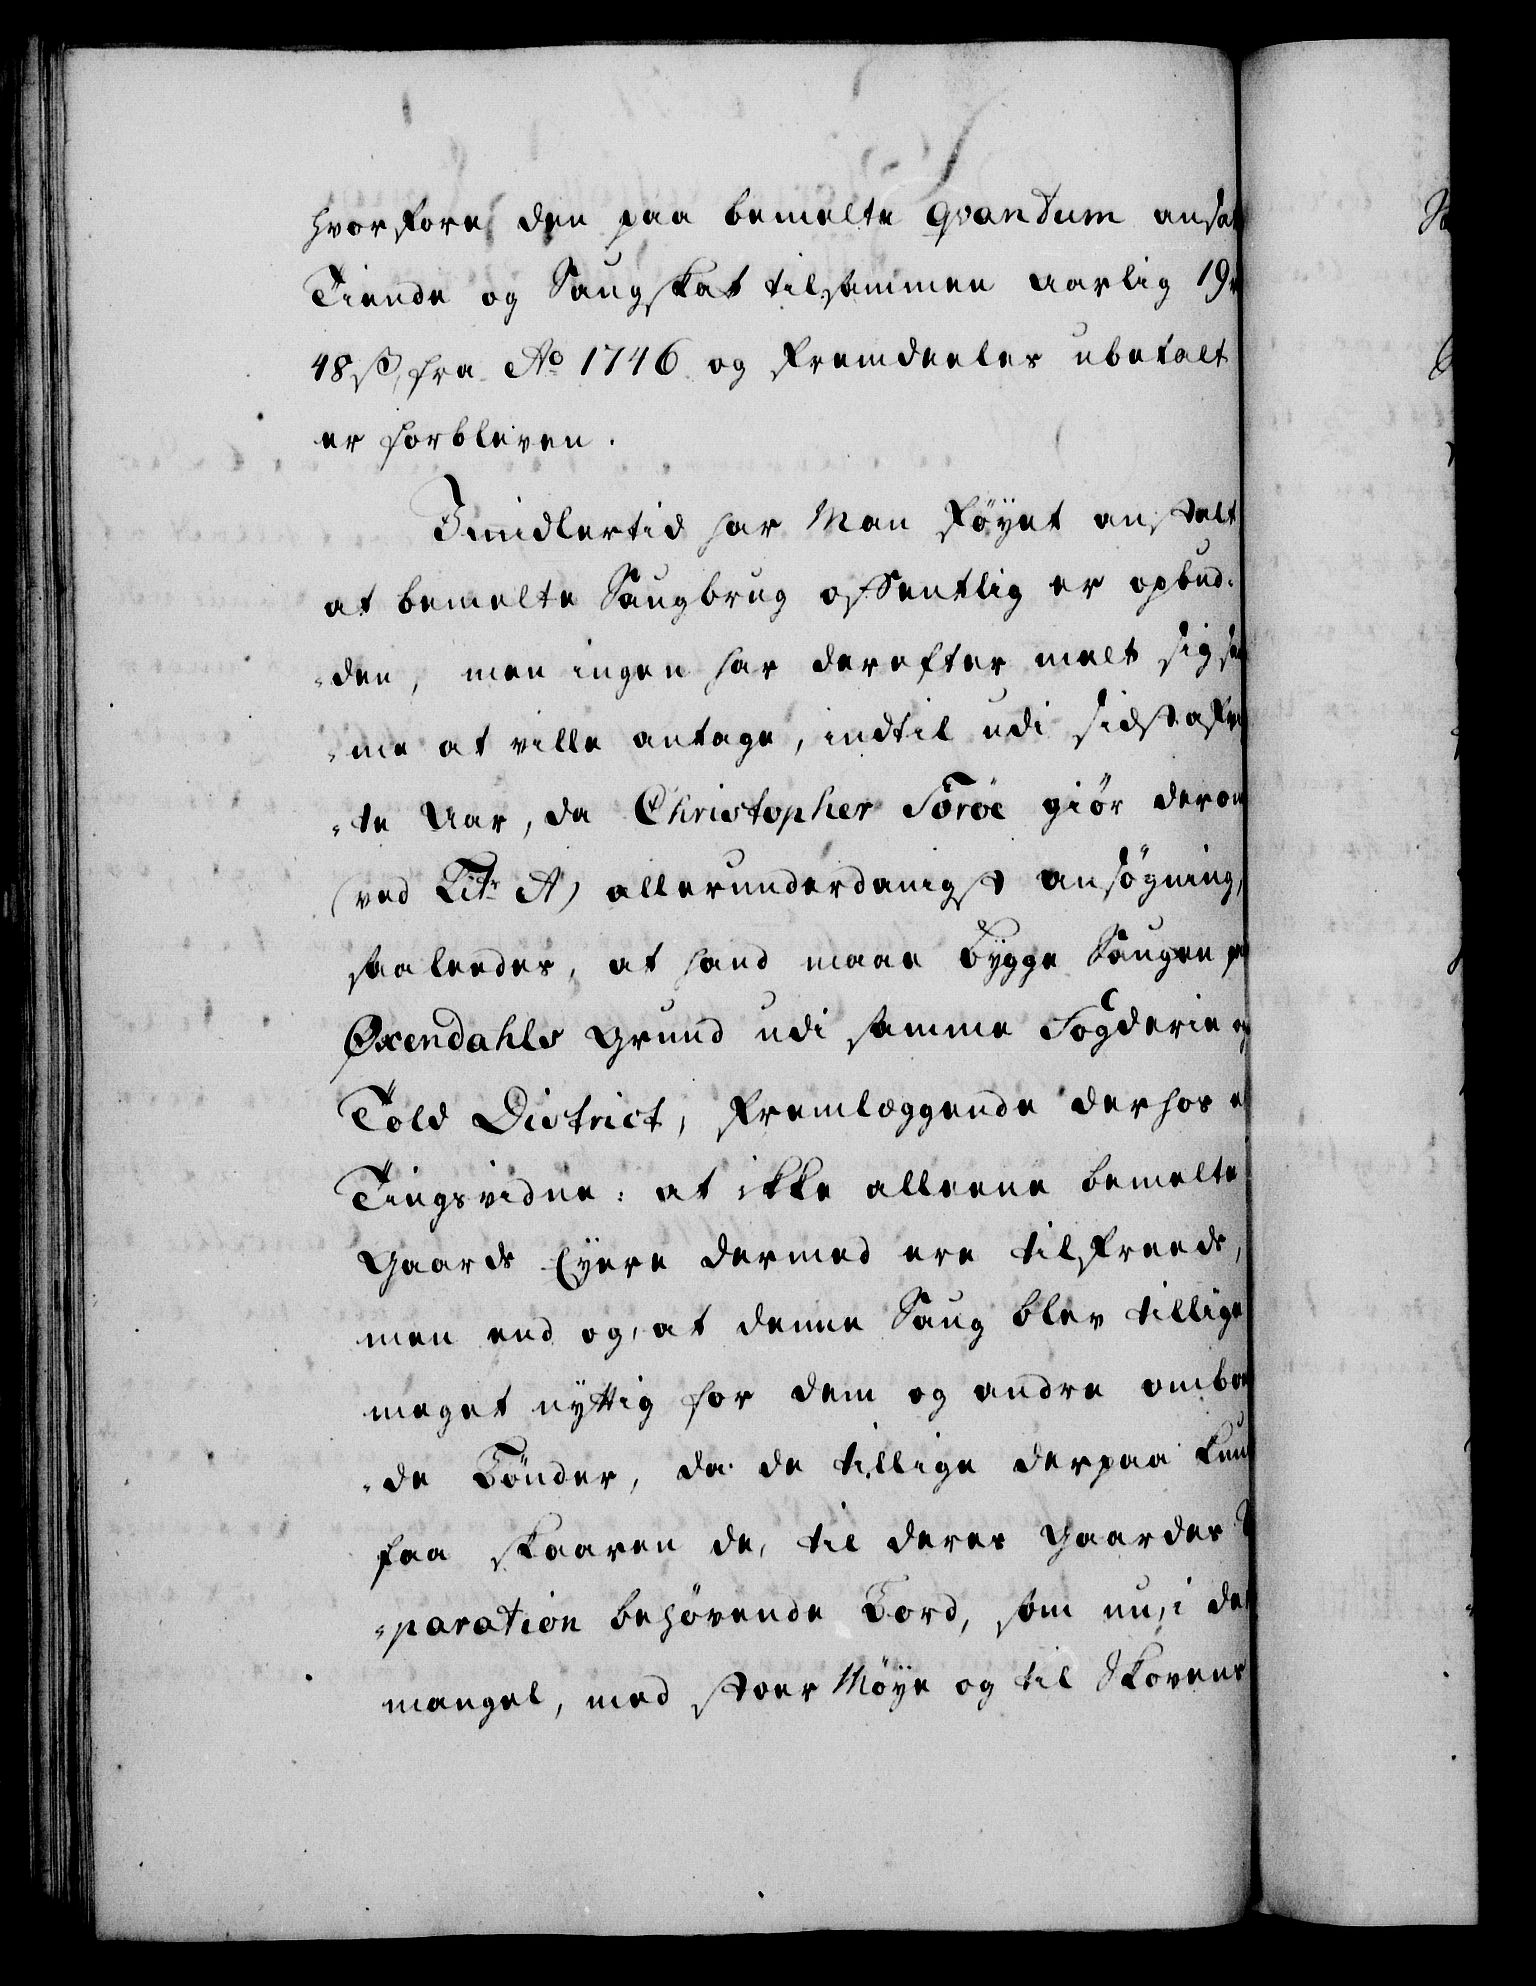 hvorfore den paa bemelte qvantum ansat
Tiende og Saugskat tilsammen aarlig 19
48 ß, fra Ao 1746 og fremdeeles ubetalt
er forbleven.
Imidlertid har Man føyet anstalt
at bemelte Saugbrug offentlig er opbud-
„den, men ingen har derefter melt sig
„me at ville antage, indtil udi sidstafvi
„te Aar, da Christopher Torøe giør derom
(ved Litr A) allerunderdanigst ansøgning,
saaleedes, at hand maae bygge Saugen
Øxendahls Grund udi samme Fogderie og
Told District, fremlæggende derhos
Tingsvidne: at ikke alleene bemelte
Gaards Eyere dermed ere tilfreeds,
men end og, at denne Saug blev tillige
meget nyttig for dem og andre omboe
„de Bønder, da de tillige derpaa kun
faa skaaren de, til deres Gaarders
„paration behøvende Bord, som nu, i det
mangel, med stoer Møye og til Skovens